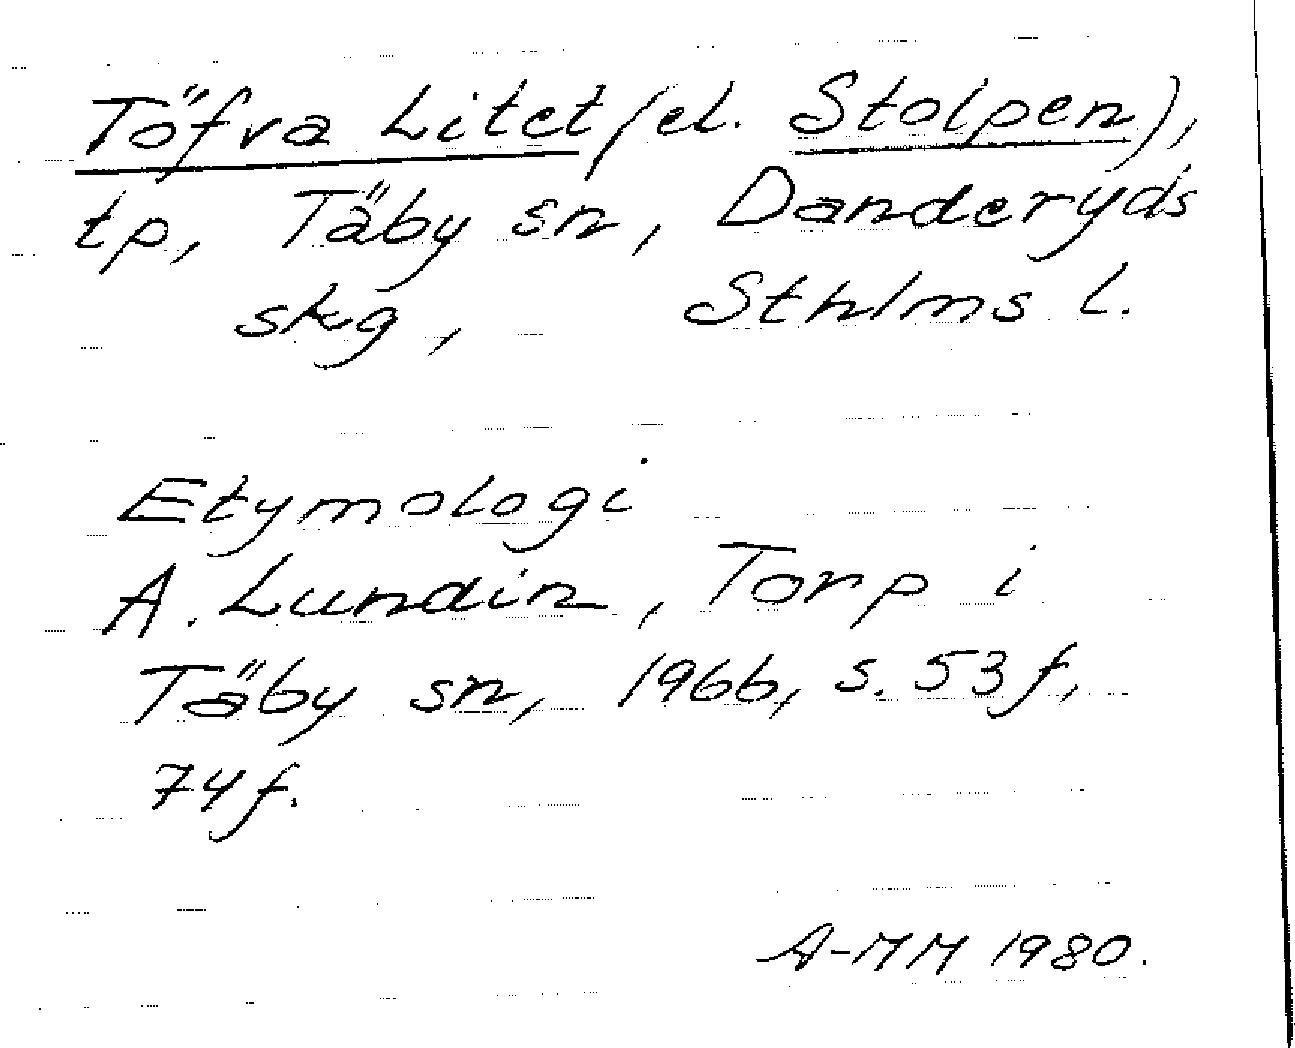 Töfva Litet (el. Stolpen),
tp, Täby sn, Danderyds
skg, Sthlms l.
Etymologi
A. Lundin, Torp i
Täby sn, 1966, s. 53 f,
74 f.
A-MM 1980.